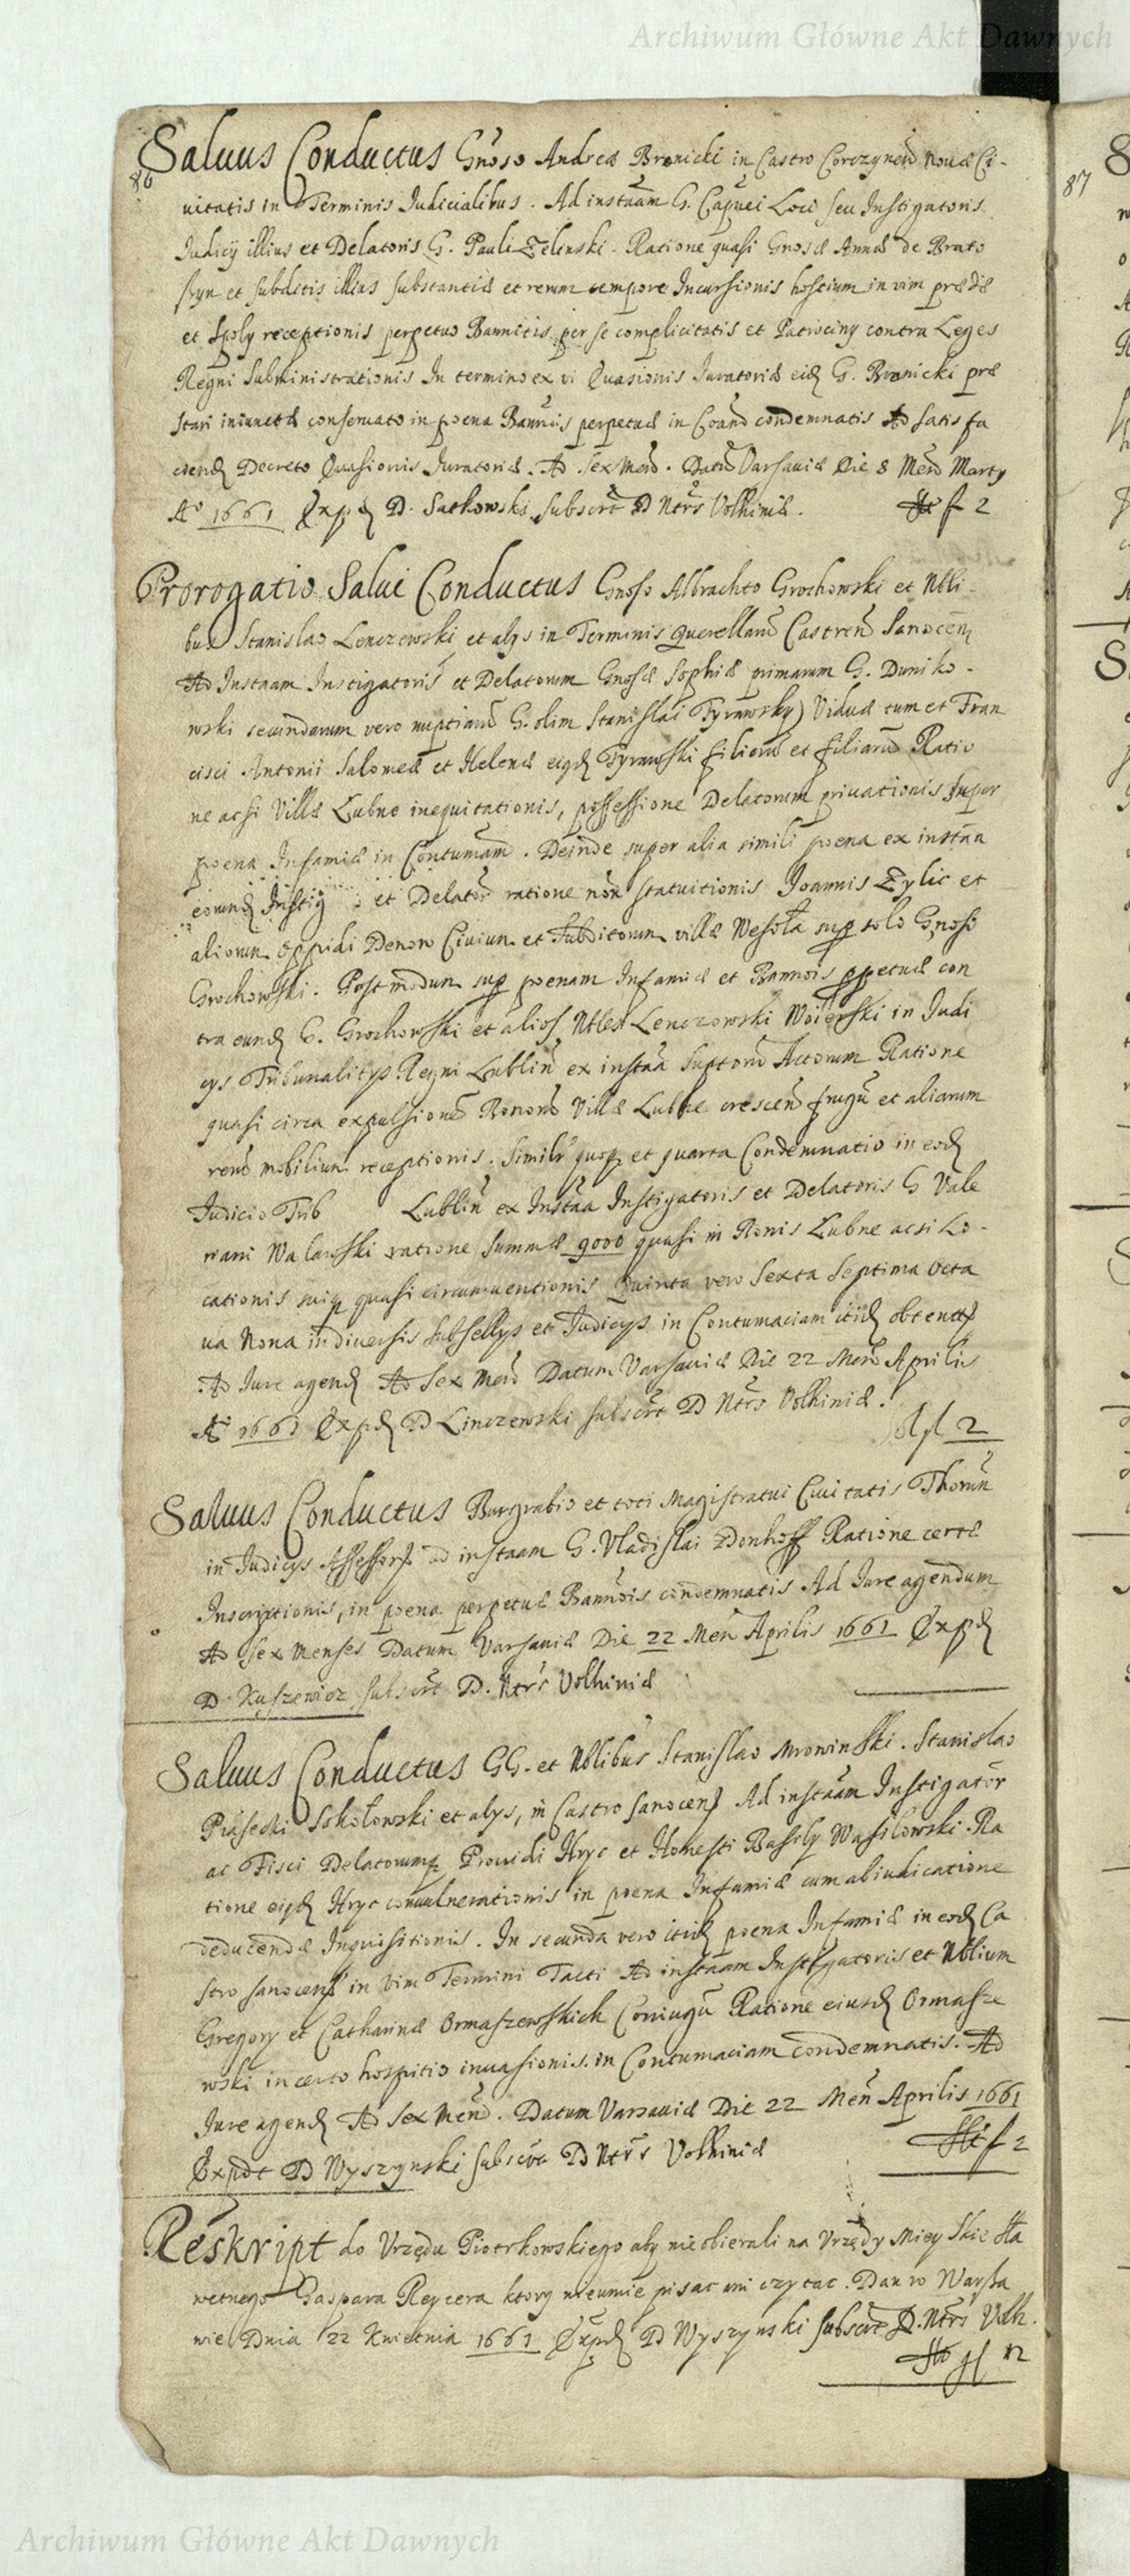 Archiwum Główne Akt Dawnych
Saluus Conductus Gnoso Andreæ Bronicki in Castro Corczynen Nouæ Ci-
86
uitatis in Terminis Judicialibus. Ad instaam G. Capnei Loci seu Instigatoris
87
Judicy illius et Delatoris G. Pauli Zelinski. Ratione quasi Gnosæ Annæ de Brato
et subditis illius substantiæ et rerum tempore Incursionis hostium in vim prædæ
et Spoly receptionis perpetuo Bannitis per se complicitatis et Patrociny contra Leges
Regni Subministrationis In termino ex vi Euasionis Juratoriæ eid G. Bronicki præ
stari iniunctæ conseruato in poena Bannois perpetuæ in Coand condemnatis Ad satis fa
ciend Decreto Euasionis Juratoriæ. Ad Sex Men. Datu Varsauiæ Die 8 Men Marty
Ao 1661 Exped D. Sutkowski subscrt D Ntrs Volhiniæ. f 2
Prorogatio Salui Conductus Gnoso Albrachto Grochowski et Nbli
bus Stanislao Lenczewski et alys in Terminis Querellaru Castren Sanocen
Ad Instaam Instigatoris et Delatorum Gnosæ Sophiæ primarum G. Duniko-
wski secundarum vero nuptiaru G. olim Stanislai Tyrawsky) Viduæ tum et Fran
cisci Antonii Salomeæ et Helenæ eigd Tyrawski filioru et filiaru Ratio
ne acsi Villæ Lubno inequitationis, possessione Delatorum priuationis super
poena Infamiæ in Contumam. Deinde super alia simili poena ex instaa
eorund Instig: et Delator ratione non statuitionis Joannis Zylic et
aliorum oppidi Denow Ciuium et Subditorum villæ Wesoła sup solo Gnoso
Grochowski. Postmodum sup poenam Infamiæ et Bannois ppetuæ con
tra eund G. Grochowski et alios Nbles Lenczowski in Judi
cys Tribunalitys Regni Lublin ex instaa Suptoru Actorum Ratione
quasi circa expulsione Bonoru Villæ Lubne crescen frugu et aliarum
reru mobilium receptionis. Similr quoq et quarta Condemnatio in eod
Judicio Trib Lublin ex Instaa Instigatoris et Delatoris G Vale
riani Walawski ratione summæ 9000 quasi in Bonis Lubne acsi Lo-
cationis suiq quasi circumuentionis Quinta vero Sexta Septima Octa
ua Nona in diuersis subsellys et Judicys in Contumaciam itid obtentis
Ad Jure agend Ad Sex Men Datum Varsauiæ Die 22 Men Aprilis
Ao 1661 Exped D Linczewski subscrt D Ntrs Volhiniæ.
2
Saluus Conductus Burgrabio et toti Magistratui Ciuitatis Thorun
in Judicys Assessors ad instaam G. Vladislai Donhoff Ratione certæ
Inscriptionis, in poena perpetuæ Bannois condemnatis Ad Jure agendum
Ad Sex Menses Datum Varsauiæ Die 22 Men Aprilis 1661 Exped
D. Kuszewicz subscrt D. Ntrs Volhiniæ
Saluus Conductus GG. et Nblibus Stanislao Mrowinski. Stanislao
Piasecki Sokołowski et alys, in Castro Sanocens Ad instaam Instigator
ac Fisci Delatorumq Prouidi Hryc et Honesti Basily Wasilowski. Ra
tione eigd Hryc conuulnerationis in poena Infamiæ cum abiudicatione
deducendæ Inquisitionis. In secunda vero itid poena Infamiæ in eod Ca
stro Sanocens in vim Termini Tacti Ad instaam Instigatoris et Nblium
Gregory et Catharinæ Ormaszewskich Coniugu Ratione eiusd Ormasze
wski in certo hospitio inuasionis in Contumaciam condemnatis. Ad
Jure agend Ad Sex Men. Datum Varsauiæ Die 22 Men Aprilis 1661
Expdt D Wyszynski subscrt D Ntrs Volhiniæ f 2
Reskript do Vrzędu Piotrkowskiego aby nie obierali na Vrzędy Mieyskie sła
wetnego Gaspara Reycera ktory nieumie pisac ani czytac. Dan w Warsza
wie Dnia 22 Kwietnia 1661 Exped D Wyszynski subscrt D. Ntrs Volh.
12
Archiwum Główne Akt Dawnych